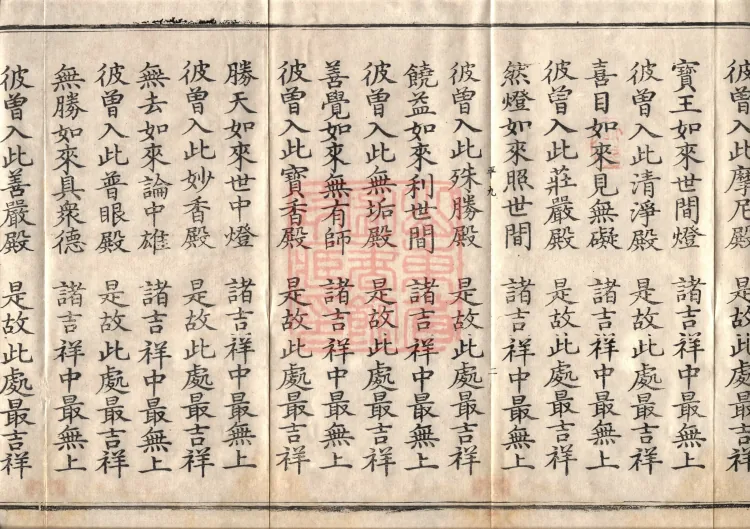 彼曾入此摩尼殿　是故此處最吉祥
寶王如來世間燈　諸吉祥中最無上
彼曾入此清淨殿　是故此處最吉祥
喜目如來見無礙　諸吉祥中最無上
彼曾入此莊嚴殿　是故此處最吉祥
然燈如來照世間　諸吉祥中最無上
平九　二
彼曾入此殊勝殿　是故此處最吉祥
饒益如來利世間　諸吉祥中最無上
彼曾入此無垢殿　是故此處最吉祥
善覺如來無有師　諸吉祥中最無上
彼曾入此寶香殿　是故此處最吉祥
勝天如來世中燈　諸吉祥中最無上
彼曾入此妙香殿　是故此處最吉祥
無去如來論中雄　諸吉祥中最無上
彼曾入此普眼殿　是故此處最吉祥
無勝如來具衆德　諸吉祥中最無上
彼曾入此善嚴殿　是故此處最吉祥